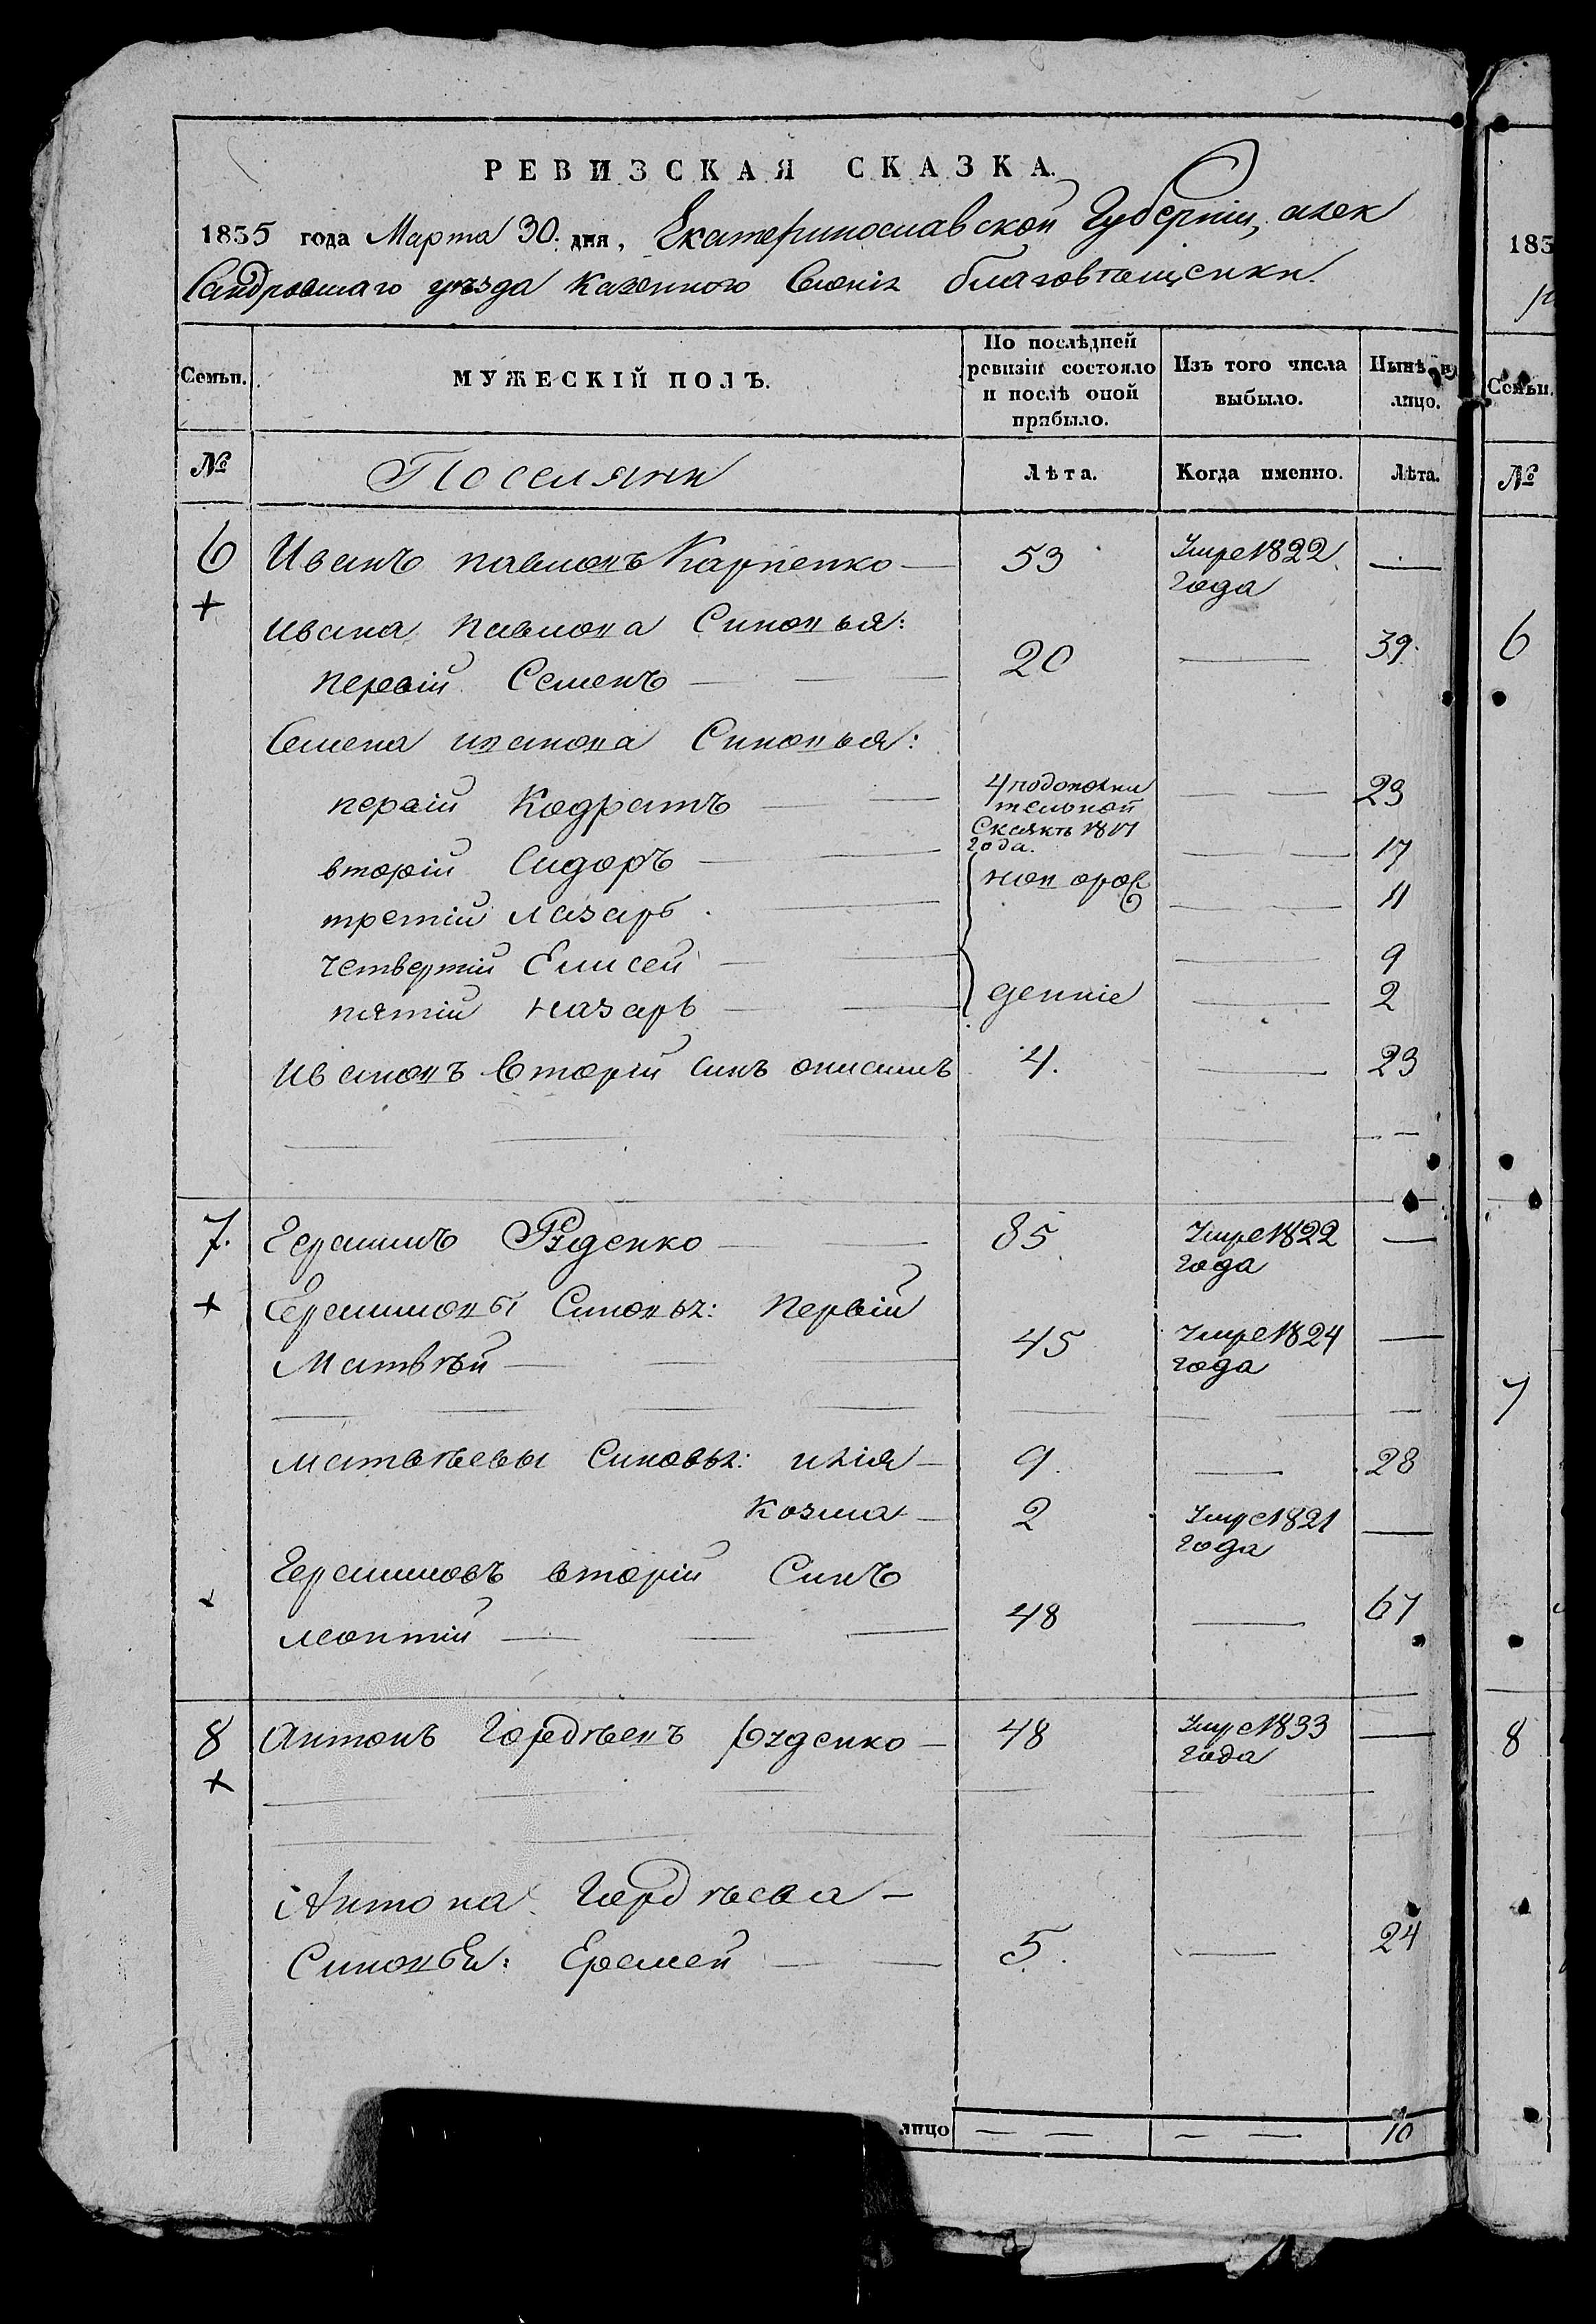 РЕВИЗСКАЯ СКАЗКА.
1835 года Марта 30. дня, Екатеринославской Губерніи, алек
сандровшаго уезда казенного Селенія благовѣщенки.
Семьи.
МУЖЕСКІЙ ПОЛЪ.
По послѣдней ревизіи состояло и послѣ оной прибыло.
Изъ того числа выбыло.
Нынѣ на лицо.
№
Поселяни
Лѣта.
Когда именно.
Лѣта.
6 Иванъ павловъ Карпенко — 53 Умре 1822 года —
Ивана павлова Синовья:
первій Семенъ — 20 — 39.
Семена иванова Синовья:
первій Кодратъ — 4 по дополни тельной Сказкѣ 1817 года. — 23
вторій Сидоръ — — 17
третій лазарь — новорож — 11
четвертій Елисей — — 9
пятій назаръ — денніе — 2
Ивановъ вторій синъ онисимъ 4. — 23
7. Герасимъ Руденко — 85 Умре 1822 года —
Герасимовы Синовья: первій
Матвѣй — 45 Умре 1824 года —
матвѣевы Синовья: илія — 9. — 28
Козма — 2 Умре 1821 года —
Герасимовъ вторій Синъ
леонтій — 48 — 67
8 Антонъ Гордѣевъ Руденко — 48 Умре 1833 года —
Антона Гордѣева —
Синовья: Еремей — 5. — 24
лицо — — — — 10
183
Семьи.
№
6
7
8